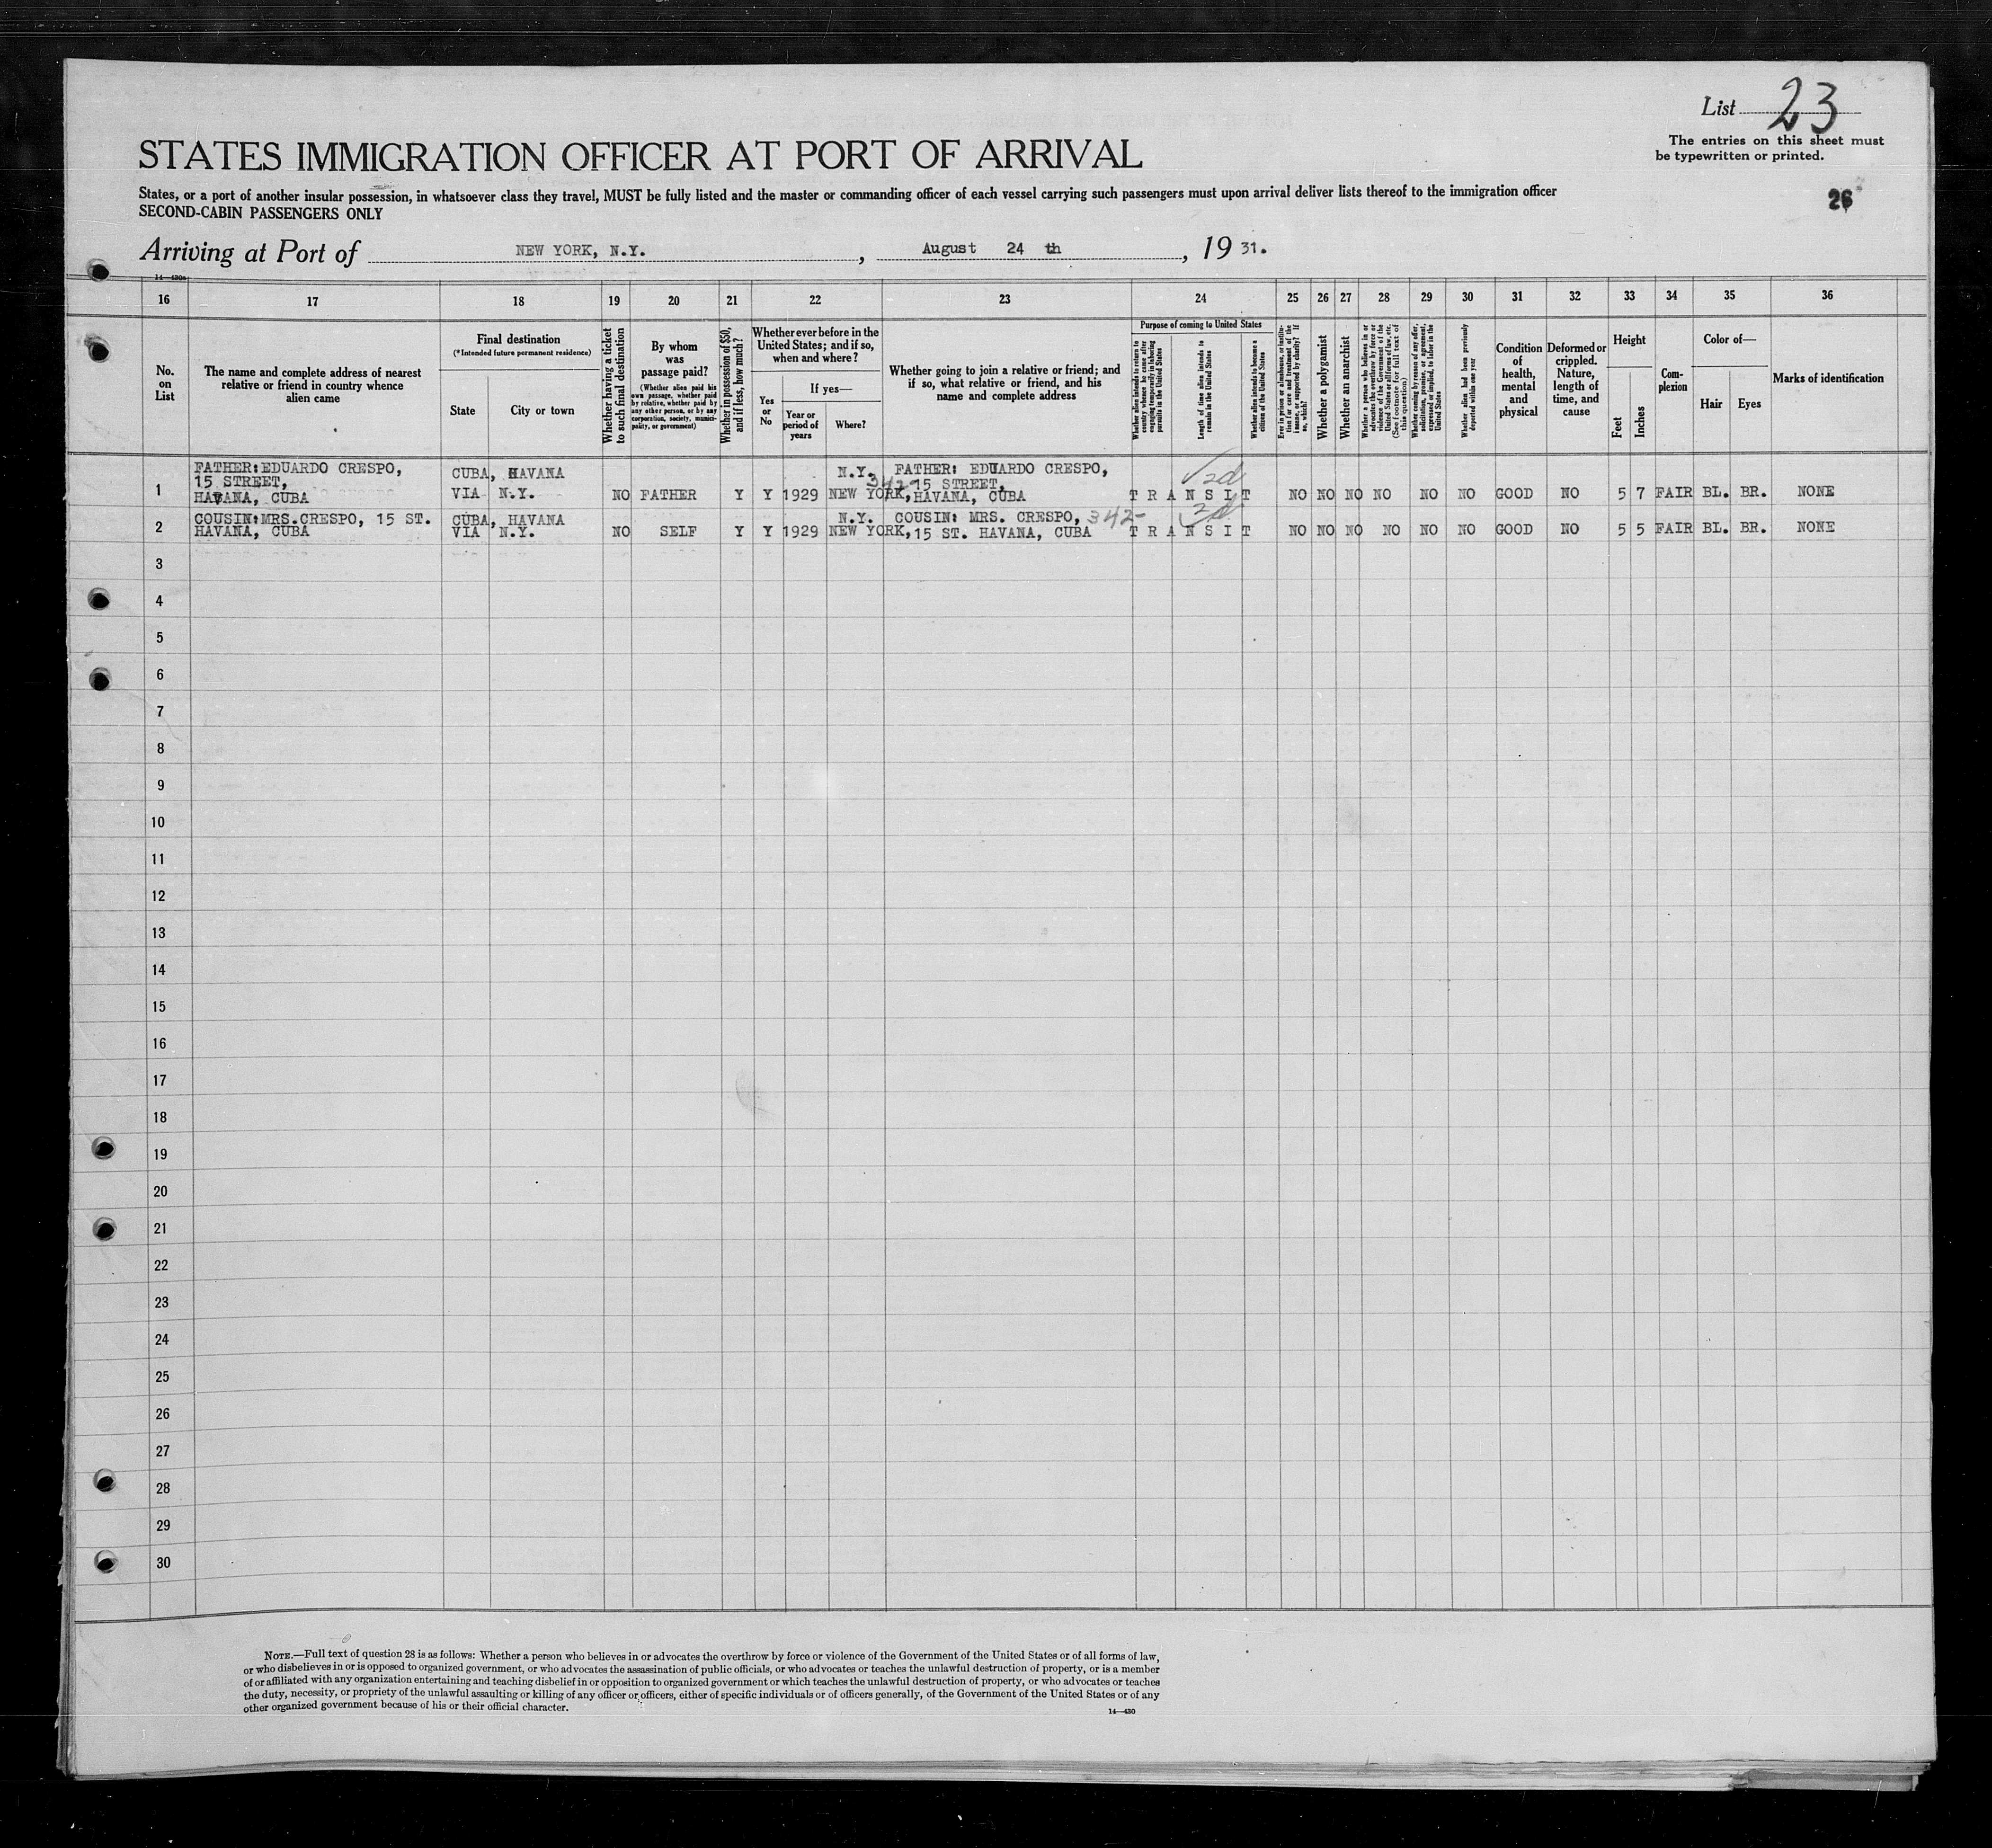 List 23
The entries on this sheet must
be typewritten or printed.
STATES IMMIGRATION OFFICER AT PORT OF ARRIVAL
States, or a port of another insular possession, in whatsoever class they travel, MUST be fully listed and the master or commanding officer of each vessel carrying such passengers must upon arrival deliver lists thereof to the immigration officer
SECOND-CABIN PASSENGERS ONLY
26
Arriving at Port of NEW YORK, N.Y. , August 24 th , 19 31.
14—430a
16 17 18 19 20 21 22 23 24 25 26 27 28 29 30 31 32 33 34 35 36
No.
on
List
The name and complete address of nearest
relative or friend in country whence
alien came
Final destination
(*Intended future permanent residence)
State
City or town
Whether having a ticket
to such final destination
By whom
was
passage paid?
(Whether alien paid his
own passage, whether paid
by relative, whether paid by
any other person, or by any
corporation, society, munici-
pality, or government)
Whether in possession of $50,
and if less, how much?
Whether ever before in the
United States; and if so,
when and where?
Yes
or
No
If yes—
Year or
period of
years
Where?
Whether going to join a relative or friend; and
if so, what relative or friend, and his
name and complete address
Purpose of coming to United States
Whether alien intends to return to
country whence he came after
engaging temporarily in laboring
pursuits in the United States
Length of time alien intends to
remain in the United States
Whether alien intends to become a
citizen of the United States
Ever in prison or almshouse, or institu-
tion for care and treatment of the
insane, or supported by charity? If
so, which?
Whether a polygamist
Whether an anarchist
Whether a person who believes in or
advocates the overthrow by force or
violence of the Government of the
United States or all forms of law, etc.
(See footnote for full text of
this question)
Whether coming by reason of any offer,
solicitation, promise, or agreement,
expressed or implied, to labor in the
United States
Whether alien had been previously
deported within one year
Condition
of
health,
mental
and
physical
Deformed or
crippled.
Nature,
length of
time, and
cause
Height
Feet
Inches
Com-
plexion
Color of—
Hair
Eyes
Marks of identification
FATHER: EDUARDO CRESPO, CUBA, HAVANA N.Y. FATHER: EDUARDO CRESPO, 2d
15 STREET, 342- 15 STREET,
1 HAVANA, CUBA VIA N.Y. NO FATHER Y Y 1929 NEW YORK, HAVANA, CUBA T R A N S I T NO NO NO NO NO NO GOOD NO 5 7 FAIR BL. BR. NONE
COUSIN: MRS. CRESPO, 15 ST. CUBA, HAVANA N.Y. COUSIN: MRS. CRESPO, 342- 2d
2 HAVANA, CUBA VIA N.Y. NO SELF Y Y 1929 NEW YORK, 15 ST. HAVANA, CUBA T R A N S I T NO NO NO NO NO NO GOOD NO 5 5 FAIR BL. BR. NONE
3
4
5
6
7
8
9
10
11
12
13
14
15
16
17
18
19
20
21
22
23
24
25
26
27
28
29
30
NOTE.—Full text of question 28 is as follows: Whether a person who believes in or advocates the overthrow by force or violence of the Government of the United States or of all forms of law,
or who disbelieves in or is opposed to organized government, or who advocates the assassination of public officials, or who advocates or teaches the unlawful destruction of property, or is a member
of or affiliated with any organization entertaining and teaching disbelief in or opposition to organized government or which teaches the unlawful destruction of property, or who advocates or teaches
the duty, necessity, or propriety of the unlawful assaulting or killing of any officer or officers, either of specific individuals or of officers generally, of the Government of the United States or of any
other organized government because of his or their official character.
14—430